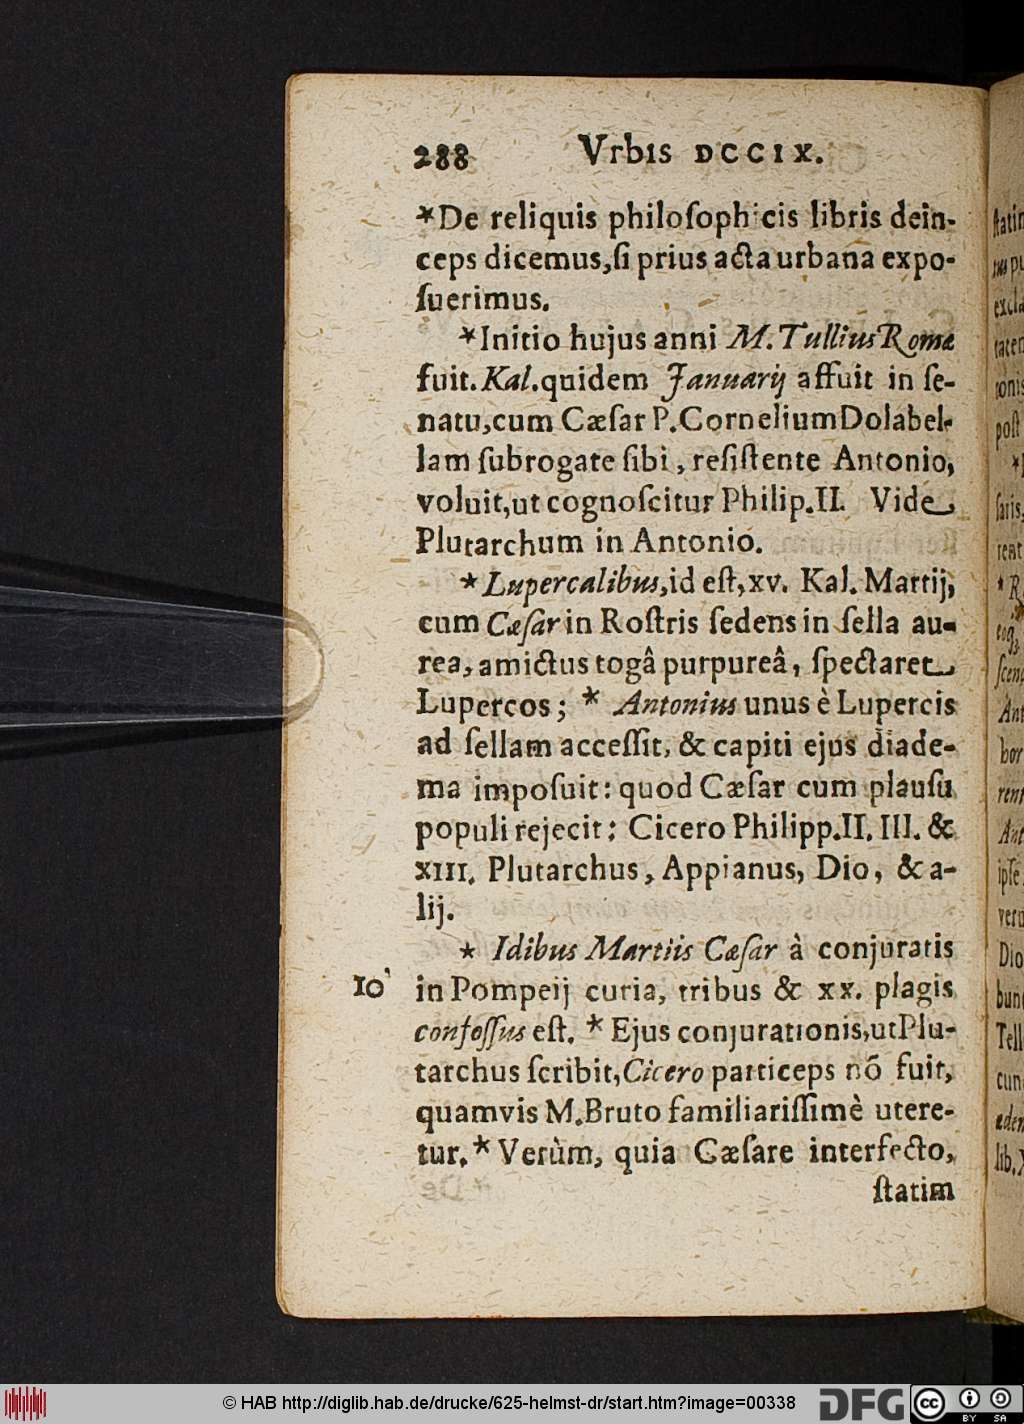 288 Vrbis DCCIX.
*De reliquis philoſophicis libris dein-
ceps dicemus,ſi prius acta urbana expo-
ſuerimus.
*Initio hujus anni M.Tullius Romæ
fuit.Kal.quidem Januarij affuit in ſe-
natu,cum Cæſar P.Cornelium Dolabel-
lam ſubrogate ſibi, reſiſtente Antonio,
voluit,ut cognoſcitur Philip.II. Vide
Plutarchum in Antonio.
*Lupercalibus,id eſt,xv. Kal. Martij,
cum Cæſar in Roſtris ſedens in ſella au-
rea, amictus togâ purpureâ, ſpectaret
Lupercos; * Antonius unus è Lupercis
ad ſellam acceſſit, & capiti ejus diade-
ma impoſuit: quod Cæſar cum plauſu
populi rejecit: Cicero Philipp.II.III. &
XIII. Plutarchus, Appianus, Dio, & a-
lij.
* Idibus Martiis Cæſar à conjuratis
10 in Pompeij curia, tribus & xx. plagis
confoſſus eſt. * Ejus conjurationis,ut Plu-
tarchus ſcribit,Cicero particeps nõ fuit,
quamvis M.Bruto familiariſſimè utere-
tur.* Verùm, quia Cæſare interfecto,
ſtatim
© HAB http://diglib.hab.de/drucke/625-helmst-dr/start.htm?image=00338
DFG
cc BY SA